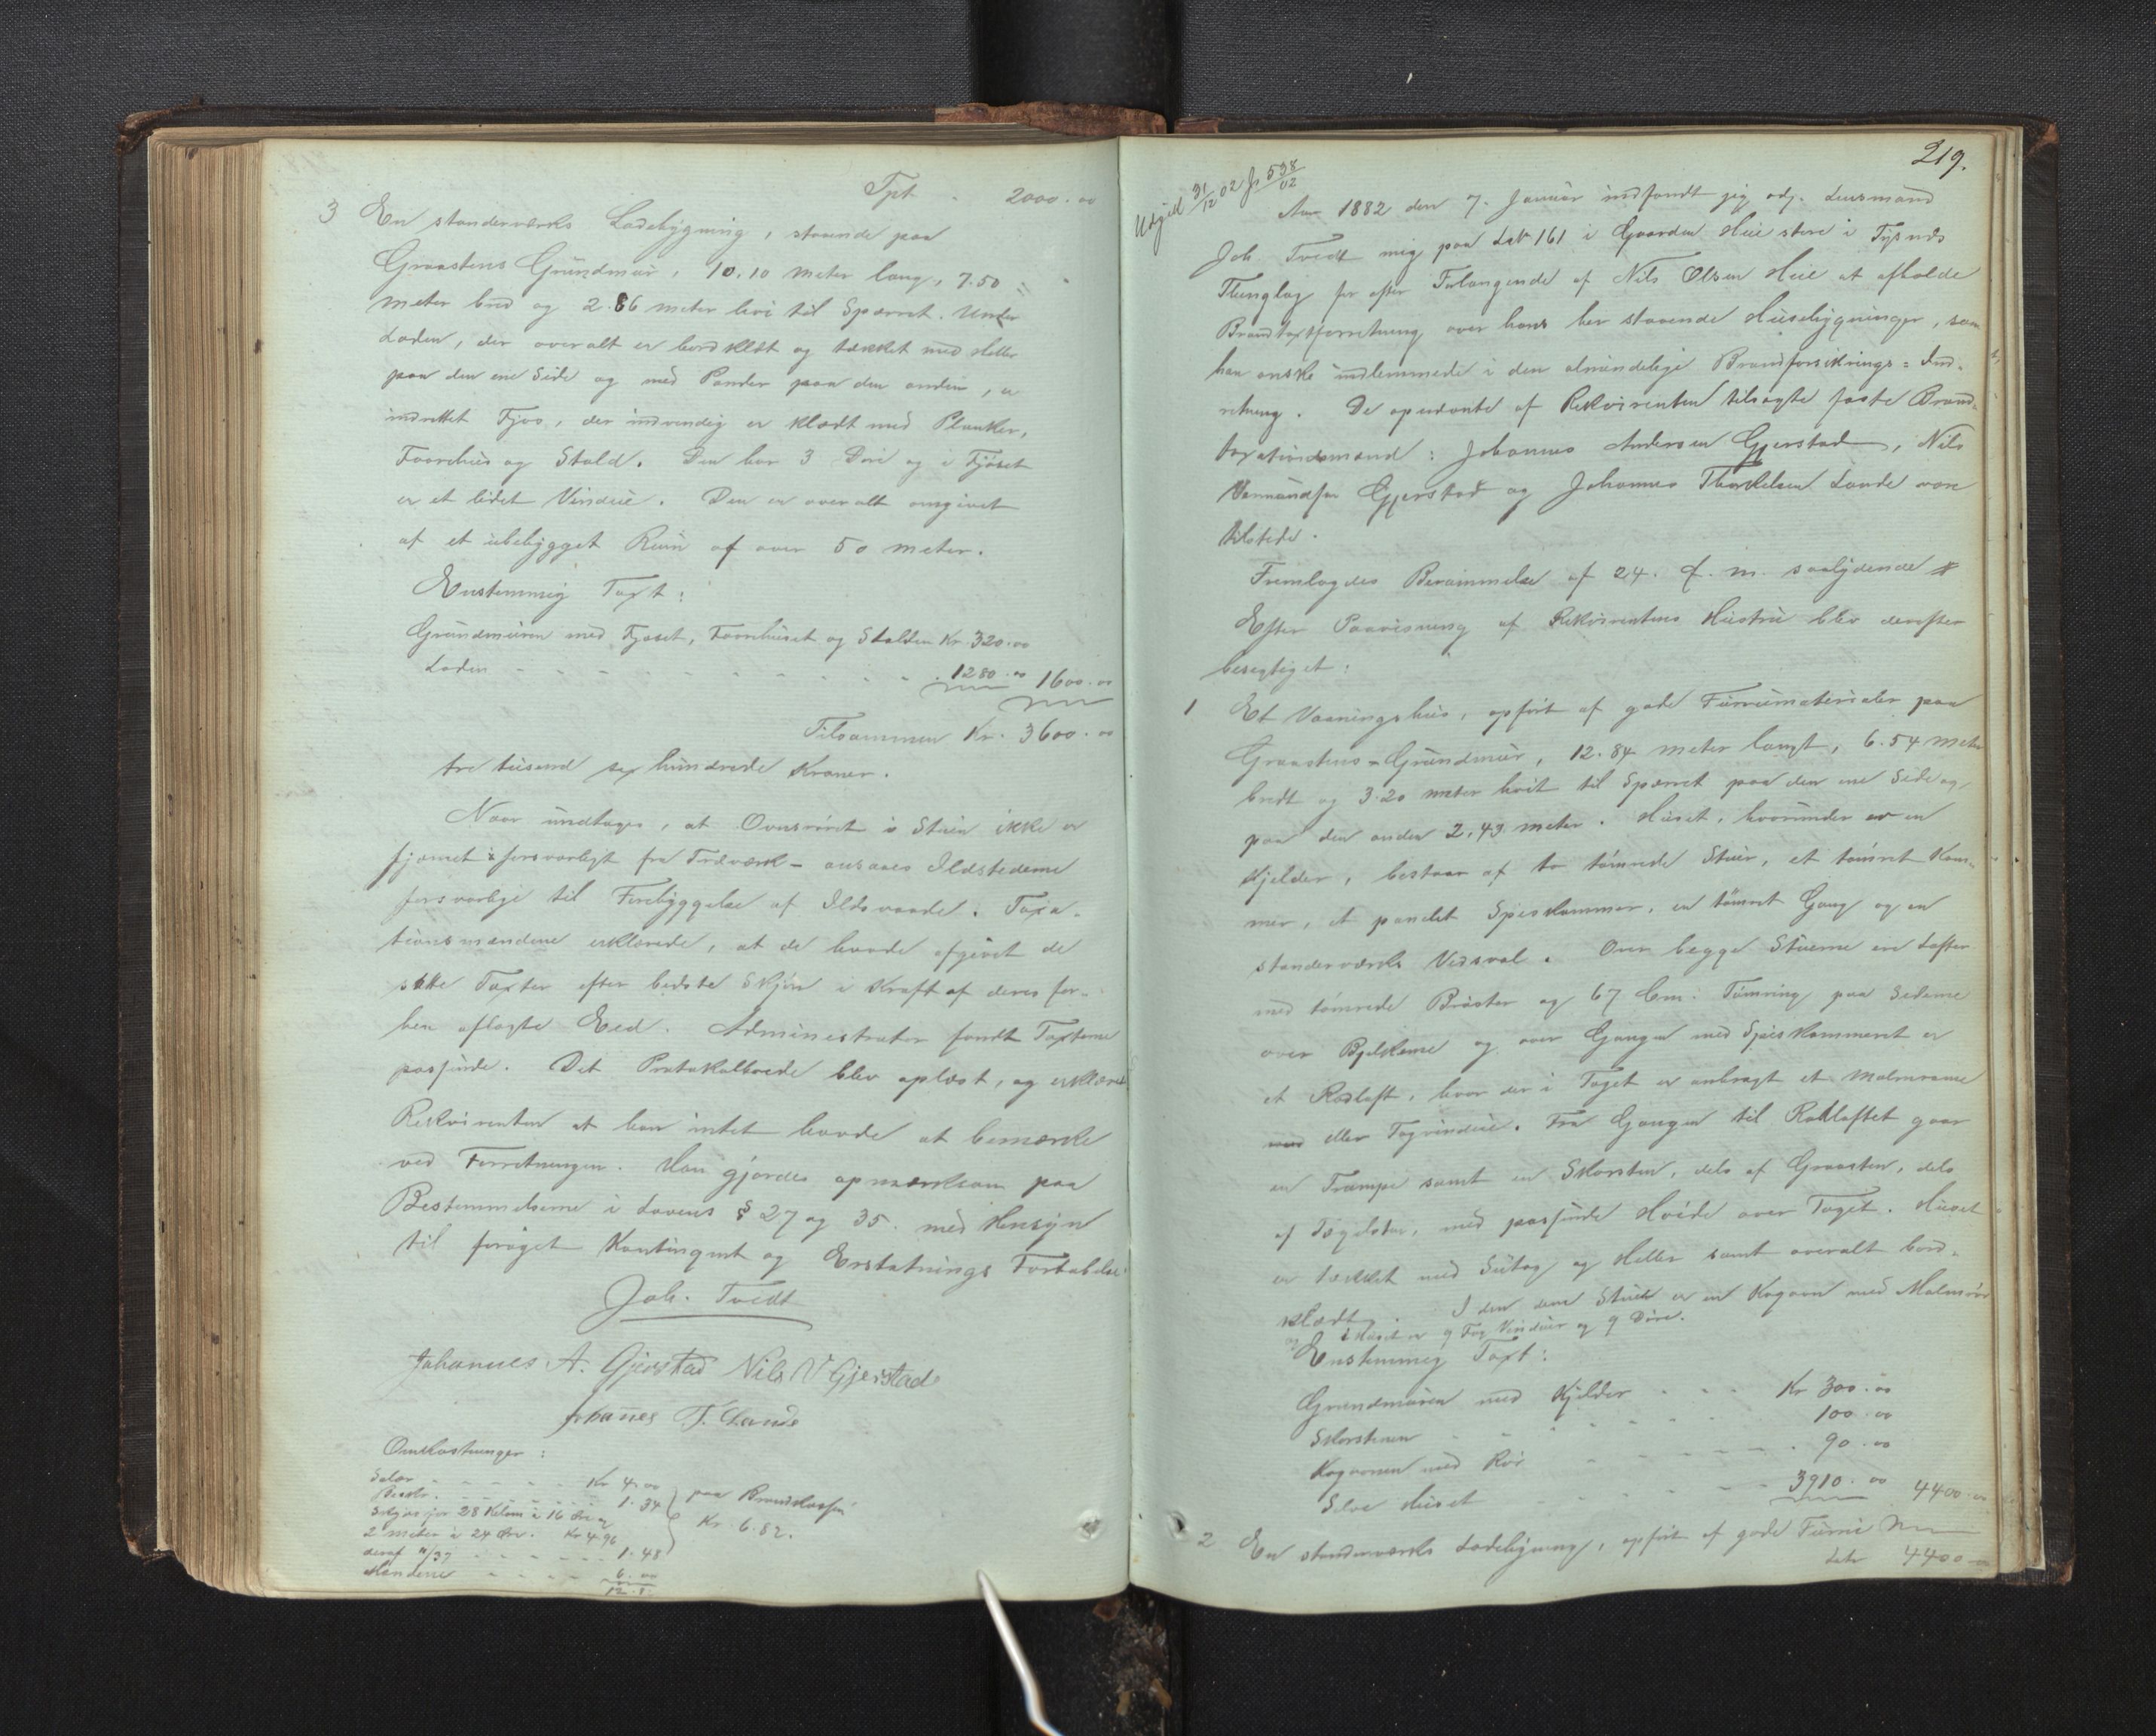 Tpt. 2000.00
3 En standerværks Ladebygning, staaende paa
Graastens Grundmur, 10.10 Meter lang, 7.50
Meter bred og 2.86 meter høi til Sparret. Under
Laden, der overalt er bordklædt og tækket med Heller
paa den ene Side og med Pander paa den anden, er
indrettet Fjøs, der indvendig er klædt med Planker,
Faarehus og Stald. Den har 3 Døre og i Fjøset
er et lidet Vindue. Den er overalt omgivet
af et ubebygget Rum af over 50 meter.
Enstemmig Taxt:
Grundmuren med Fjøset, Faarehuset og Stalden Kr. 320.00
Laden - - - - 1280.00 1600.00
Tilsammen Kr. 3600.00
tre tusend sex hundrede Kroner.
Naar undtages, at Ovnsrøret i Stuen ikke er
fjernet forsvarligt fra Træværk - ansaaes Ildstederne
forsvarlige til Forebyggelse af Ildsvaade. Taxa-
tionsmændene erklærede, at de havde afgivet de
satte Taxter efter bedste Skjøn i Kraft af deres for-
hen aflagte Eed. Administrator fandt Taxterne
passende. Det Protokollerede blev oplæst, og erklærede
Rekvirenten at han intet havde at bemærke
ved Forretningen. Han gjordes opmærksom paa
Bestemmelserne i Lovens § 27 og 35 med Hensyn
til forøget Kontingent og Erstatnings Fortabelse
Joh. Tvedt
Johannes A. Gjerstad Nils V Gjerstad
Johannes T. Lande
Omkostninger:
Salær - - - - Kr 4.00
1.34 } paa Brandkassen
Skyds for 28 Kilom a 16 Øre og Kr. 6.82.
2 meter a 24 Øre. Kr 4.96
deraf 11/37 - - - - 1.48
Mændene - - - - 6.00
12.8
219.
Udgaaet 31/12 02 Js 538/02
Aar 1882 den 7. Januar indfandt sig adj. Lensmand
Joh. Tvedt mig paa LNr 161 i Gaarden Heie store i Tysnes
Thinglag for efter Forlangende af Nils Olsen Heie at afholde
Brandtaxtforretning over hans her staaende Husebygninger, som
han ønske indlemmede i den almindelige Brandforsikrings-Ind-
retning. De opnævnte af Rekvirenten tilsagte faste Brand-
taxationsmænd: Johannes Andersen Gjerstad, Nils
Gjerstad og Johannes Thorkelsen Lande vare
tilstede.
Fremlagdes Berammelse af 24. f. m. saalydende #
Efter Paavisning af Rekvirentens Hustru blev derefter
besigtiget:
1 Et Vaaningshus, opført af gode Furumaterialer paa
Graastens-Grundmur, 12.84 meter langt, 6.54 meter
bredt og 3.20 meter høit til Sparret paa den ene Side og
paa den anden 2.43 meter. Huset, hvorunder er en
Kjelder, bestaar af to tømrede Stuer, et tømret Kam-
mer, et panelet Spiskammer, en tømret Gang og en
standerværks Vedsval. Over begge Stuerne ere Lofter
med tømrede Brøster og 67 Cm: Tømring paa Siderne
over Bjelkerne og over Gangen med Spiskammeret er
et Rødloft, hvor der i Taget er anbragt et Malmramme
eller Tagvindue. Fra Gangen til Rødloftet gaar
en Trampe samt en Skorsten, dels af Graasten, dels
af Teglsten, med passende Høide over Taget. Huset
er tækket med Sutag og Heller samt overalt bord-
klædt. I den ene Stue er en Kogeovn med Malmrør
og i Huset er 9 Fag Vinduer og 9 Døre.
Enstemmig Taxt:
Grundmuren med Kjelder - - - Kr 300.00
Skorstenen - - - - 100.00
Kogeovnen med Rør - - - - 90.00
Selve Huset - - - - 3910.00 4400.00
2 En standerværks Ladebygning, opført af gode Furu
Lats 4400.00